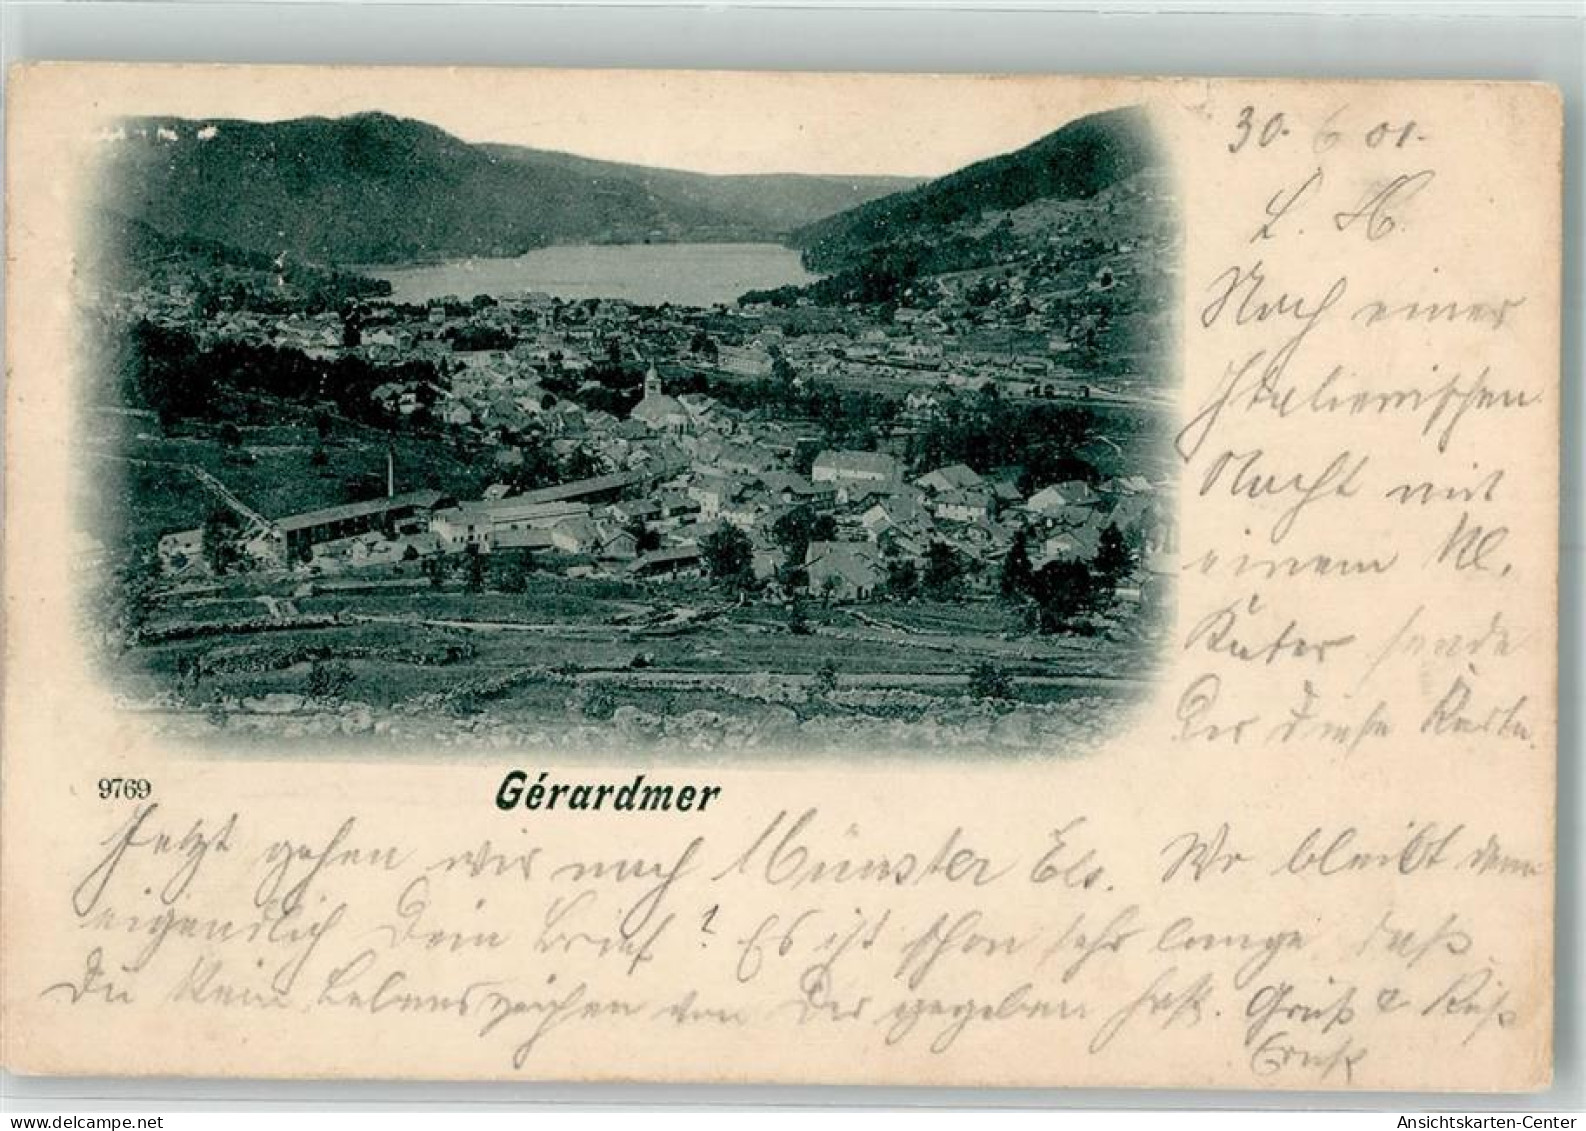 30. 6 01.
L. H.
Nach einer
Italienischen
Nacht mit
einem kl.
Kater sende
Dir diese Karte.
9769
Gérardmer
Jetzt gehen wir nach Münster Els. Wo bleibt denn
eigendlich Dein Brief? Es ist schon sehr lange, daß
Du kein Lebenszeichen von Dir gegeben hast. Gruß & Kuß
Ernst
oldthing.de
Ansichtskarten-Center